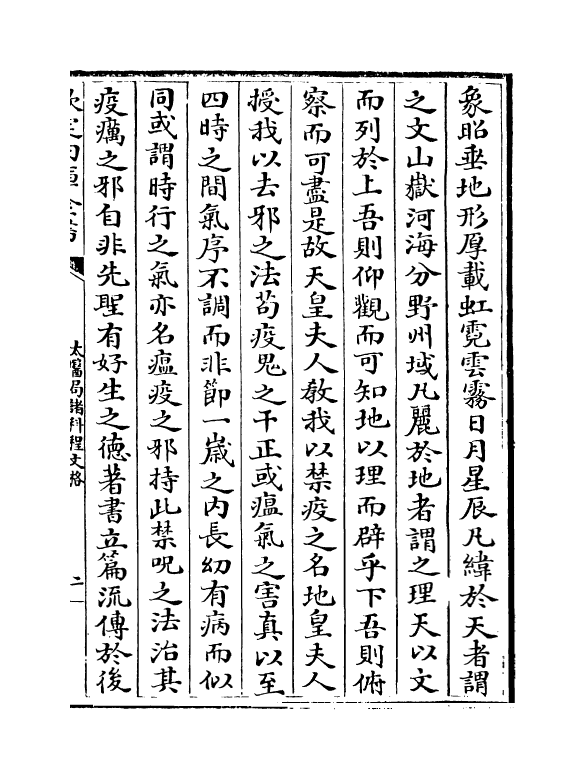 象昭垂地形厚載虹霓雲霧日月星辰凡緯於天者謂
之文山嶽河海分野州域凡麗於地者謂之理天以文
而列於上吾則仰觀而可知地以理而辟乎下吾則俯
察而可盡是故天皇夫人教我以禁疫之名地皇夫人
授我以去邪之法苟疫鬼之干正或瘟氣之害真以至
四時之間氣序不調而非節一歲之内長幼有病而似
同或謂時行之氣亦名瘟疫之邪持此禁呪之法治其
疫癘之邪自非先聖有好生之德著書立篇流傳於後
欽定四庫全書
太醫局諸科程文格
二